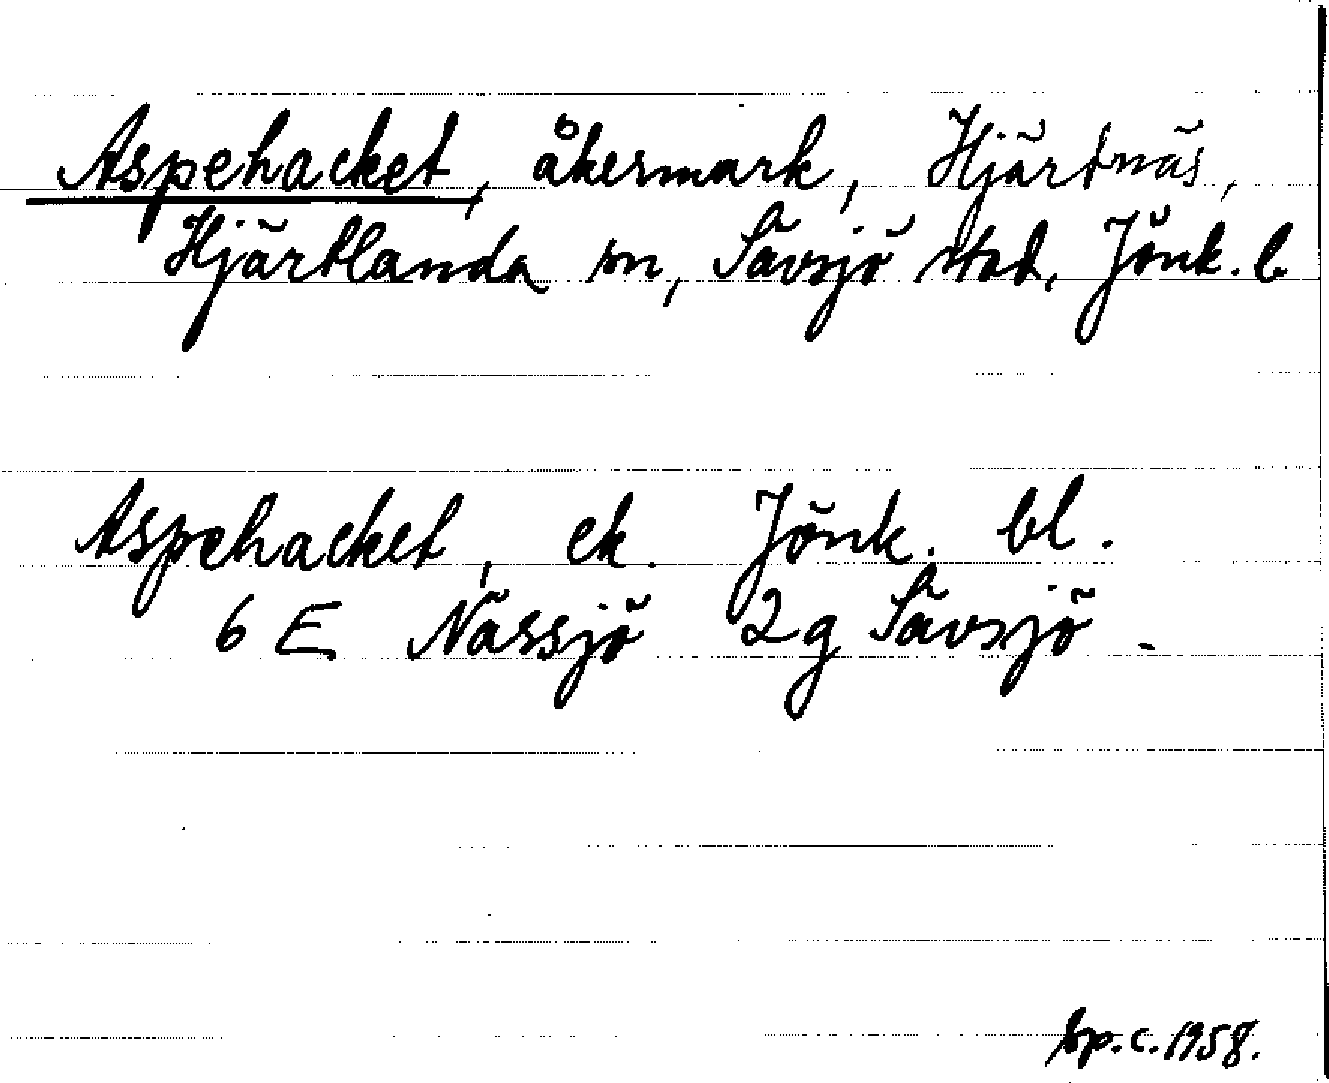 Aspehacket, åkermark, Hjärtnäs,
Hjärtlanda sn, Sävsjö stad, Jönk. l.
Aspehacket, ek. Jönk. bl.
6 E Nässjö 2g Sävsjö -
sp. c. 1958.